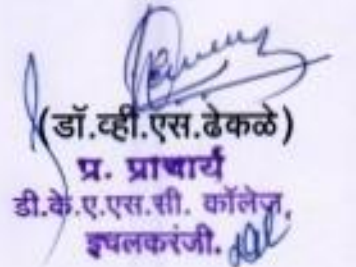 (डॉ.व्ही.एस.ढेकळे)
प्र. प्राचार्य
डी.के.ए.एस.सी. कॉलेज,
इचलकरंजी.